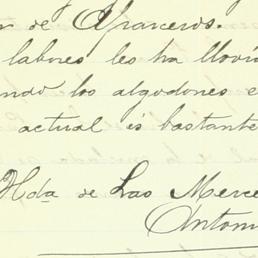 de Aparceros.
labores les ha llovi
ndo los algodones e
actual es bastante
Hda de Las Merce
Antoni